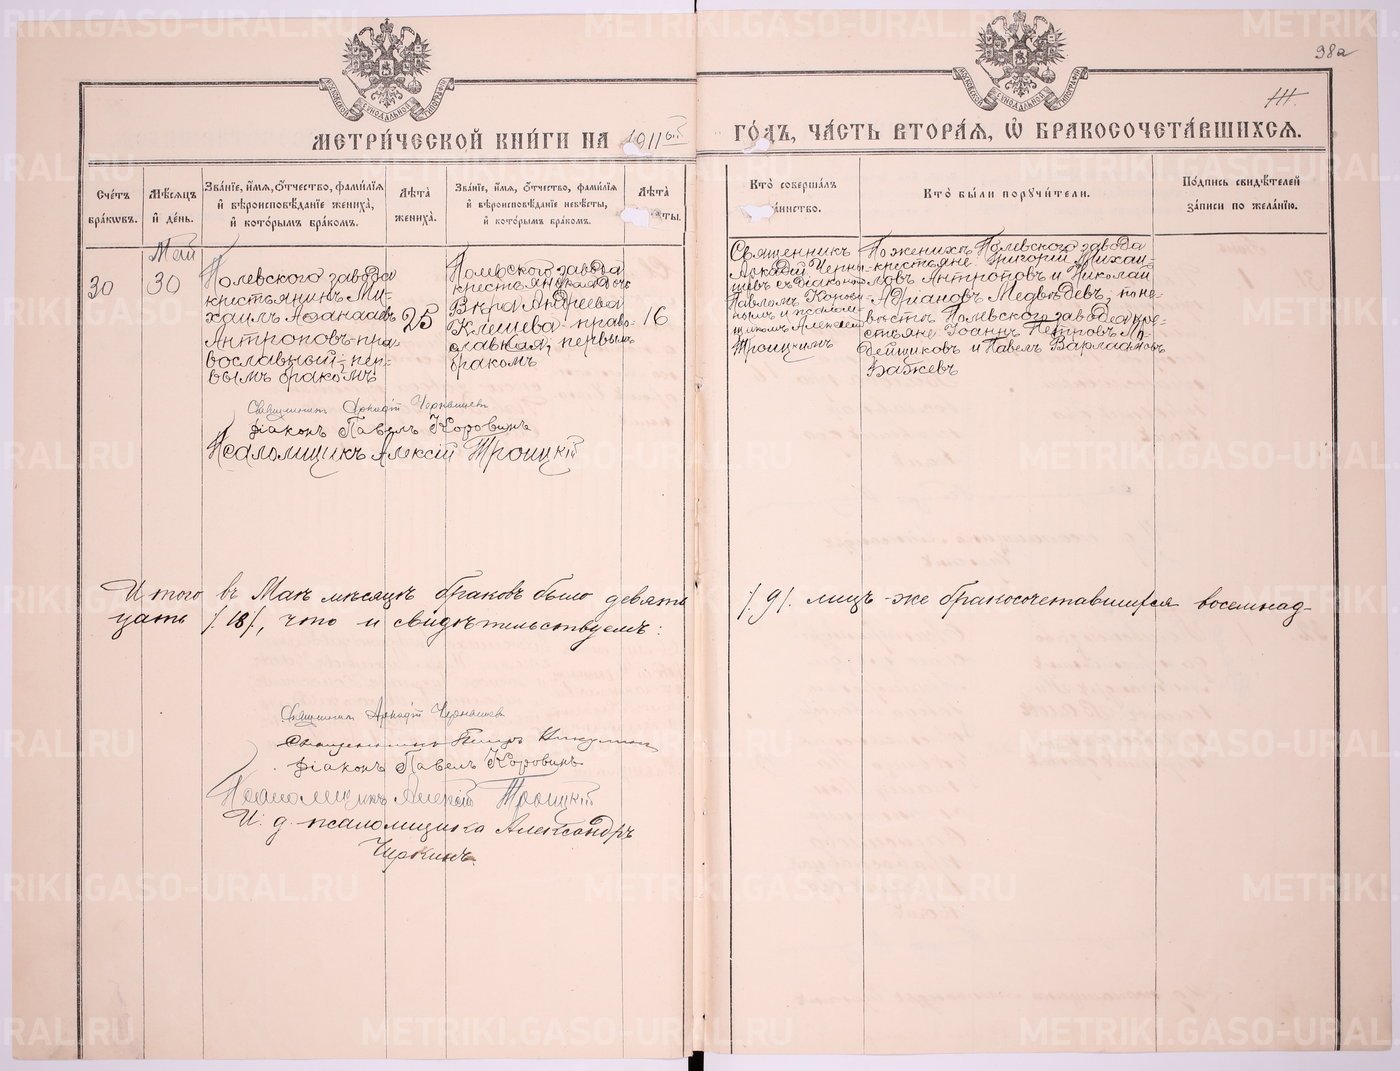 98а
МЕТРИ́ЧЕСКОЙ КНИ́ГИ НА 1911ый ГО́ДЪ, ЧА́СТЬ ВТОРА́Я, Ѽ БРАКОСОЧЕТА́ВШИХСЯ.
Сче́тъ бра́кѡвъ.
Мѣ́сяцъ и҆ де́нь.
Зва́нїе, и҆́мя, ѻ҆́тчество, фами́лїя
и҆ вѣроисповѣ́данїе жениха̀,
и҆ кото́рымъ бра́комъ.
Лѣта̀
жениха̀.
Зва́нїе, и҆́мя, ѻ҆́тчество, фами́лїя
и҆ вѣроисповѣ́данїе невѣ́сты,
и҆ кото́рымъ бра́комъ.
Лѣта̀
ты.
Кто̀ соверша́лъ
а́инство.
Кто̀ бы́ли порꙋчи́тели.
По́дпись свидѣ́телей
за́писи по жела́нїю.
Май
30
30
Полевского завода
крестьянинъ Ми-
хаилъ Аѳанасьевъ
Антроповъ-пра-
вославный, пер-
вымъ бракомъ
25
Полевского завода
крестьянская дочь
Вѣра Андреева
Клешева право-
славная, первымъ
бракомъ
16
Священникъ
Аркадій Черны-
шевъ съ діакономъ
Павломъ Корови-
нымъ и псалом-
щикомъ Алексѣемъ
Троицкимъ
По женихѣ Полевского завода
крестьяне Григорій Михаи-
ловъ Антроповъ и Николай
Адріановъ Медвѣдевъ; по не-
вѣстѣ Полевского завода кре-
стьяне Іоаннъ Петровъ
и Павелъ Варлаамовъ
Бажевъ
Священникъ Аркадій Чернышев
Діаконъ Павелъ Коровинъ
Псаломщикъ Алексій Троицкій
Итого въ Маѣ мѣсяцѣ браковъ было девять /9/. лицъ-же бракосочетавшихся восемнад-
цать /18/, что и свидѣтельствуемъ:
Священникъ Аркадій Чернышев
Священникъ Петръ
Діаконъ Павелъ Коровинъ
Псаломщикъ Алексій Троицкій
И. д. псаломщика Александръ
Чиркинъ.
METRIKI.GASO-URAL.RU